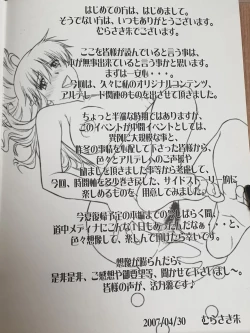 はじめての方は、はじめまして。
そうでない方は、いつもありがとうございます。
むらさき朱でございます。
ここを皆様が読んでいると言う事は、
本が無事出ていると言う事かと思います。
まずは一安心・・・。
今回は、久々に私のオリジナルコンテンツ、
アルテレード関連のものを出させて頂きました。
ちょっと半端な時期ではありますが、
このイベントが中間イベントとしては、
異例に大規模な事と、
昨冬の事情を本で読んで下さった皆様から、
色々とアルテレードへのご声援や
励ましを頂きました事等から考慮して、
今回、時間軸を多少巻き戻した、サイドストーリー的に
楽しめるものを、用意してみました。
今夏復帰予定の本編までの、しばらく間、
道中メディナにこんな1日もあったんだなぁ・・・と、
色々想像して、楽しんで頂けたら幸いです。
想像が膨らんだら、
是非是非、ご感想や御要望等、聞かせて下さいまし～。
皆様の声が、活力源です♪
2007/04/30 むらさき朱